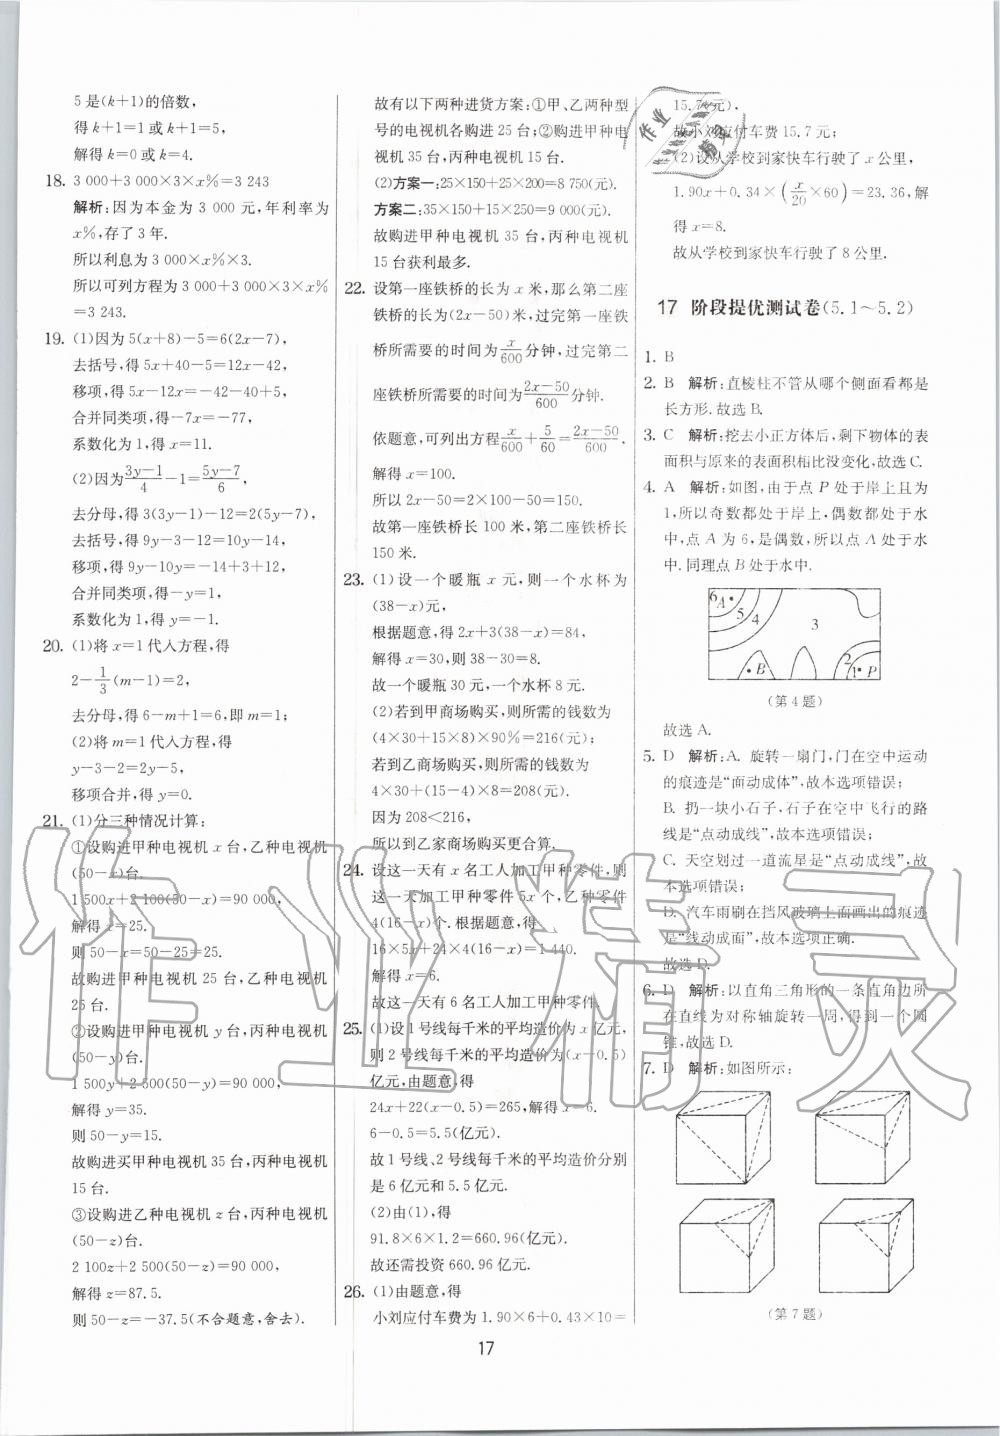 5是(k+1)的倍数,
得k+1=1或k+1=5,
解得k=0或k=4.
18. 3 000+3 000×3×x%=3 243
解析:因为本金为3 000元,年利率为
x%,存了3年.
所以利息为3 000×x%×3.
所以可列方程为3 000+3 000×3×x%
=3 243.
19. (1)因为5(x+8)-5=6(2x-7),
去括号,得5x+40-5=12x-42,
移项,得5x-12x=-42-40+5,
合并同类项,得-7x=-77,
系数化为1,得x=11.
(2)因为(3y-1)/4-1=(5y-7)/6,
去分母,得3(3y-1)-12=2(5y-7),
去括号,得9y-3-12=10y-14,
移项,得9y-10y=-14+3+12,
合并同类项,得-y=1,
系数化为1,得y=-1.
20. (1)将x=1代入方程,得
2-1/3(m-1)=2,
去分母,得6-m+1=6,即m=1;
(2)将m=1代入方程,得
y-3-2=2y-5,
移项合并,得y=0.
21. (1)分三种情况计算:
①设购进甲种电视机x台,乙种电视机
(50-x)台.
1 500x+2 100(50-x)=90 000,
解得x=25.
则50-x=50-25=25.
故购进甲种电视机25台,乙种电视机
25台.
②设购进甲种电视机y台,丙种电视机
(50-y)台.
1 500y+2 500(50-y)=90 000,
解得y=35.
则50-y=15.
故购进买甲种电视机35台,丙种电视机
15台.
③设购进乙种电视机z台,丙种电视机
(50-z)台.
2 100z+2 500(50-z)=90 000,
解得z=87.5.
则50-z=-37.5(不合题意,舍去).
故有以下两种进货方案:①甲、乙两种型
号的电视机各购进25台;②购进甲种电
视机35台,丙种电视机15台.
(2)方案一:25×150+25×200=8 750(元).
方案二:35×150+15×250=9 000(元).
故购进甲种电视机35台,丙种电视机
15台获利最多.
22. 设第一座铁桥的长为x米,那么第二座
铁桥的长为(2x-50)米,过完第一座铁
桥所需要的时间为x/600分钟,过完第二
座铁桥所需要的时间为(2x-50)/600分钟.
依题意,可列出方程x/600+5/60=(2x-50)/600.
解得x=100.
所以2x-50=2×100-50=150.
故第一座铁桥长100米,第二座铁桥长
150米.
23. (1)设一个暖瓶x元,则一个水杯为
(38-x)元,
根据题意,得2x+3(38-x)=84,
解得x=30,则38-30=8.
故一个暖瓶30元,一个水杯8元.
(2)若到甲商场购买,则所需的钱数为
(4×30+15×8)×90%=216(元);
若到乙商场购买,则所需的钱数为
4×30+(15-4)×8=208(元).
因为208<216,
所以到乙家商场购买更合算.
24. 设这一天有x名工人加工甲种零件,则
这一天加工甲种零件5x个,乙种零件
4(16-x)个.根据题意,得
16×5x+24×4(16-x)=1 440.
解得x=6.
故这一天有6名工人加工甲种零件.
25. (1)设1号线每千米的平均造价为x亿元,
则2号线每千米的平均造价为(x-0.5)
亿元,由题意,得
24x+22(x-0.5)=265,解得x=6.
6-0.5=5.5(亿元).
故1号线、2号线每千米的平均造价分别
是6亿元和5.5亿元.
(2)由(1),得
91.8×6×1.2=660.96(亿元).
故还需投资660.96亿元.
26. (1)由题意,得
小刘应付车费为1.90×6+0.43×10=
15.7(元),
故小刘应付车费15.7元;
(2)设从学校到家快车行驶了x公里,
1.90x+0.34×(x/20×60)=23.36,解
得x=8.
故从学校到家快车行驶了8公里.
17 阶段提优测试卷(5.1~5.2)
1. B
2. B 解析:直棱柱不管从哪个侧面看都是
长方形.故选B.
3. C 解析:挖去小正方体后,剩下物体的表
面积与原来的表面积相比没变化,故选C.
4. A 解析:如图,由于点P处于岸上且为
1,所以奇数都处于岸上,偶数都处于水
中,点A为6,是偶数,所以点A处于水
中.同理点B处于水中.
6 A 5 4 3 B 2 1 P
(第4题)
故选A.
5. D 解析:A. 旋转一扇门,门在空中运动
的痕迹是“面动成体”,故本选项错误;
B. 扔一块小石子,石子在空中飞行的路
线是“点动成线”,故本选项错误;
C. 天空划过一道流星是“点动成线”,故
本选项错误;
D. 汽车雨刷在挡风玻璃上面画出的痕迹
是“线动成面”,故本选项正确.
故选D.
6. D 解析:以直角三角形的一条直角边所
在直线为对称轴旋转一周,得到一个圆
锥,故选D.
7. D 解析:如图所示:
(第7题)
17
作业精灵
作业
精灵